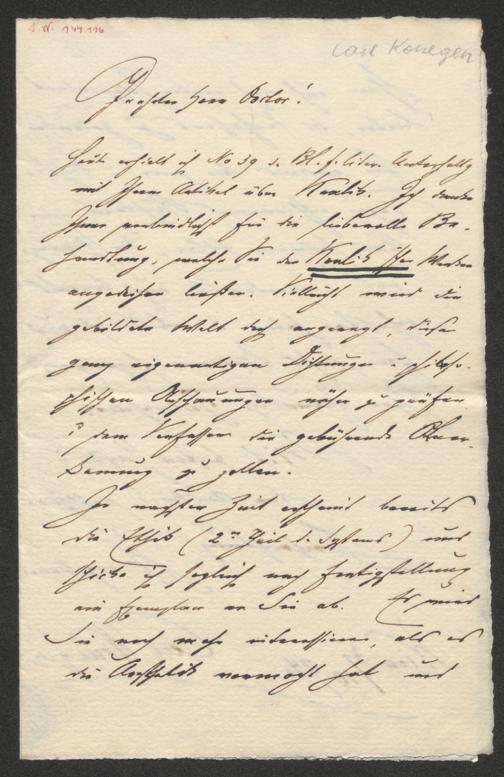 I. N. 144.116
Carl Konegen
Geehrter Herr Doctor!
Heute erhielt ich No 39 d. Bl. f. liter. Unterhaltg
mit Ihrem Artikel über Kralik. Ich danke
Ihnen verbindlichst für die liebevolle Be-
handlung, welche Sie den Kralik'schen Werken
angedeihen ließen. Vielleicht wird die
gebildete Welt doch angeregt, diese
ganz eigenartigen Dichtungen u philoso-
phischen Anschauungen näher zu prüfen
u dem Verfasser die gebührende Aner-
kennung zu zollen.
In nächster Zeit erscheint bereits
die Ethik (2er Theil d. Systems) und
schicke ich sogleich nach Fertigstellung
ein Exemplar an Sie ab. Es wird
Sie noch mehr interessieren, als es
die Aesthetik vermocht hat und